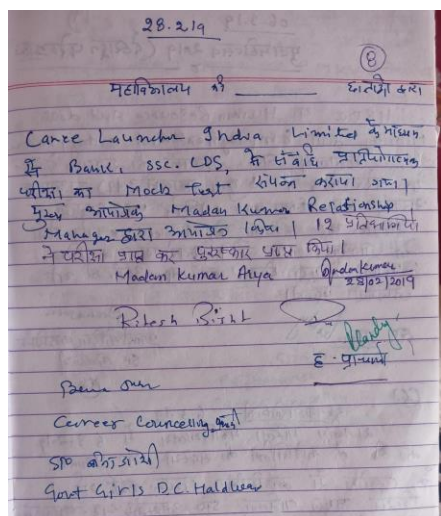 28.2.19
8
महाविद्यालय की छात्राओं द्वारा
Career Launcher India Limited के माध्यम
से Bank, SSC. CDS, से संबंधित प्रतियोगात्मक
परीक्षा का Mock Test संपन्न कराया गया।
मुख्य आयोजक Madan Kumar Relationship
Manager द्वारा आयोजन किया। 12 प्रतिभागियों
ने परीक्षा कर पुरस्कार प्राप्त किया।
Madan Kumar Arya
28/02/2019
Ritesh Bisht
ह. प्राचार्य
Career Councelling
Govt Girls D.C. Haldwani